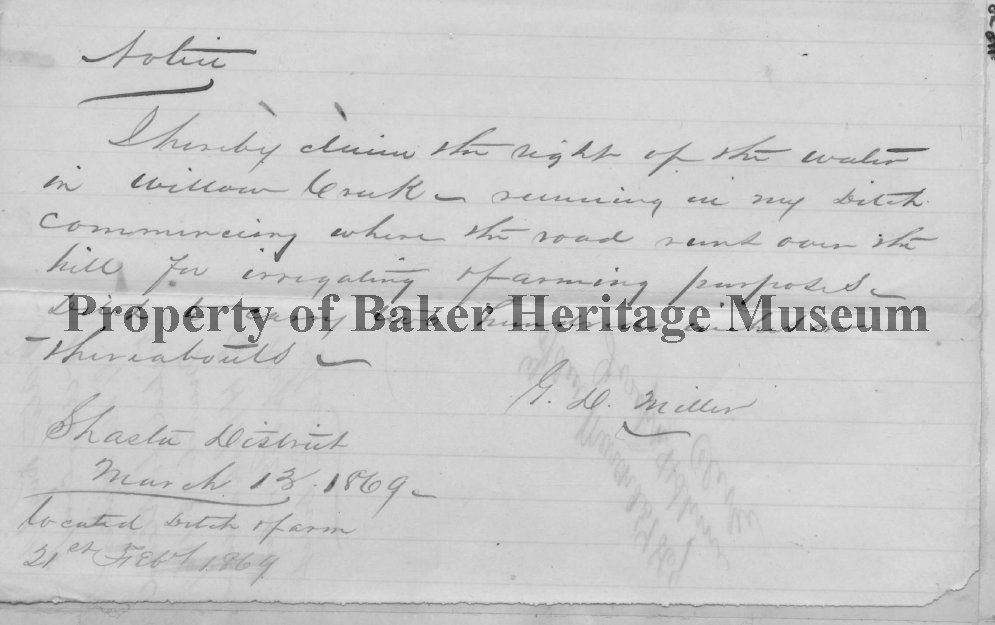 Notice
I hereby claim the right of the water
in Willow Creek - running in my Ditch
commencing where the road runs over the
hill for irrigating & farming purposes -
Ditch to carry hundred inches
Property of Baker Heritage Museum
thereabouts -
G. D. Miller
Shasta District
March 13. 1869 -
located Ditch & farm
21st Feby 1869